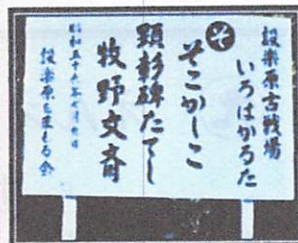 設楽原古戦場
いろはかるた
そ
そこかしこ
顕彰碑たてし
牧野文斎
昭和五十六年七月七日
設楽原を守る会